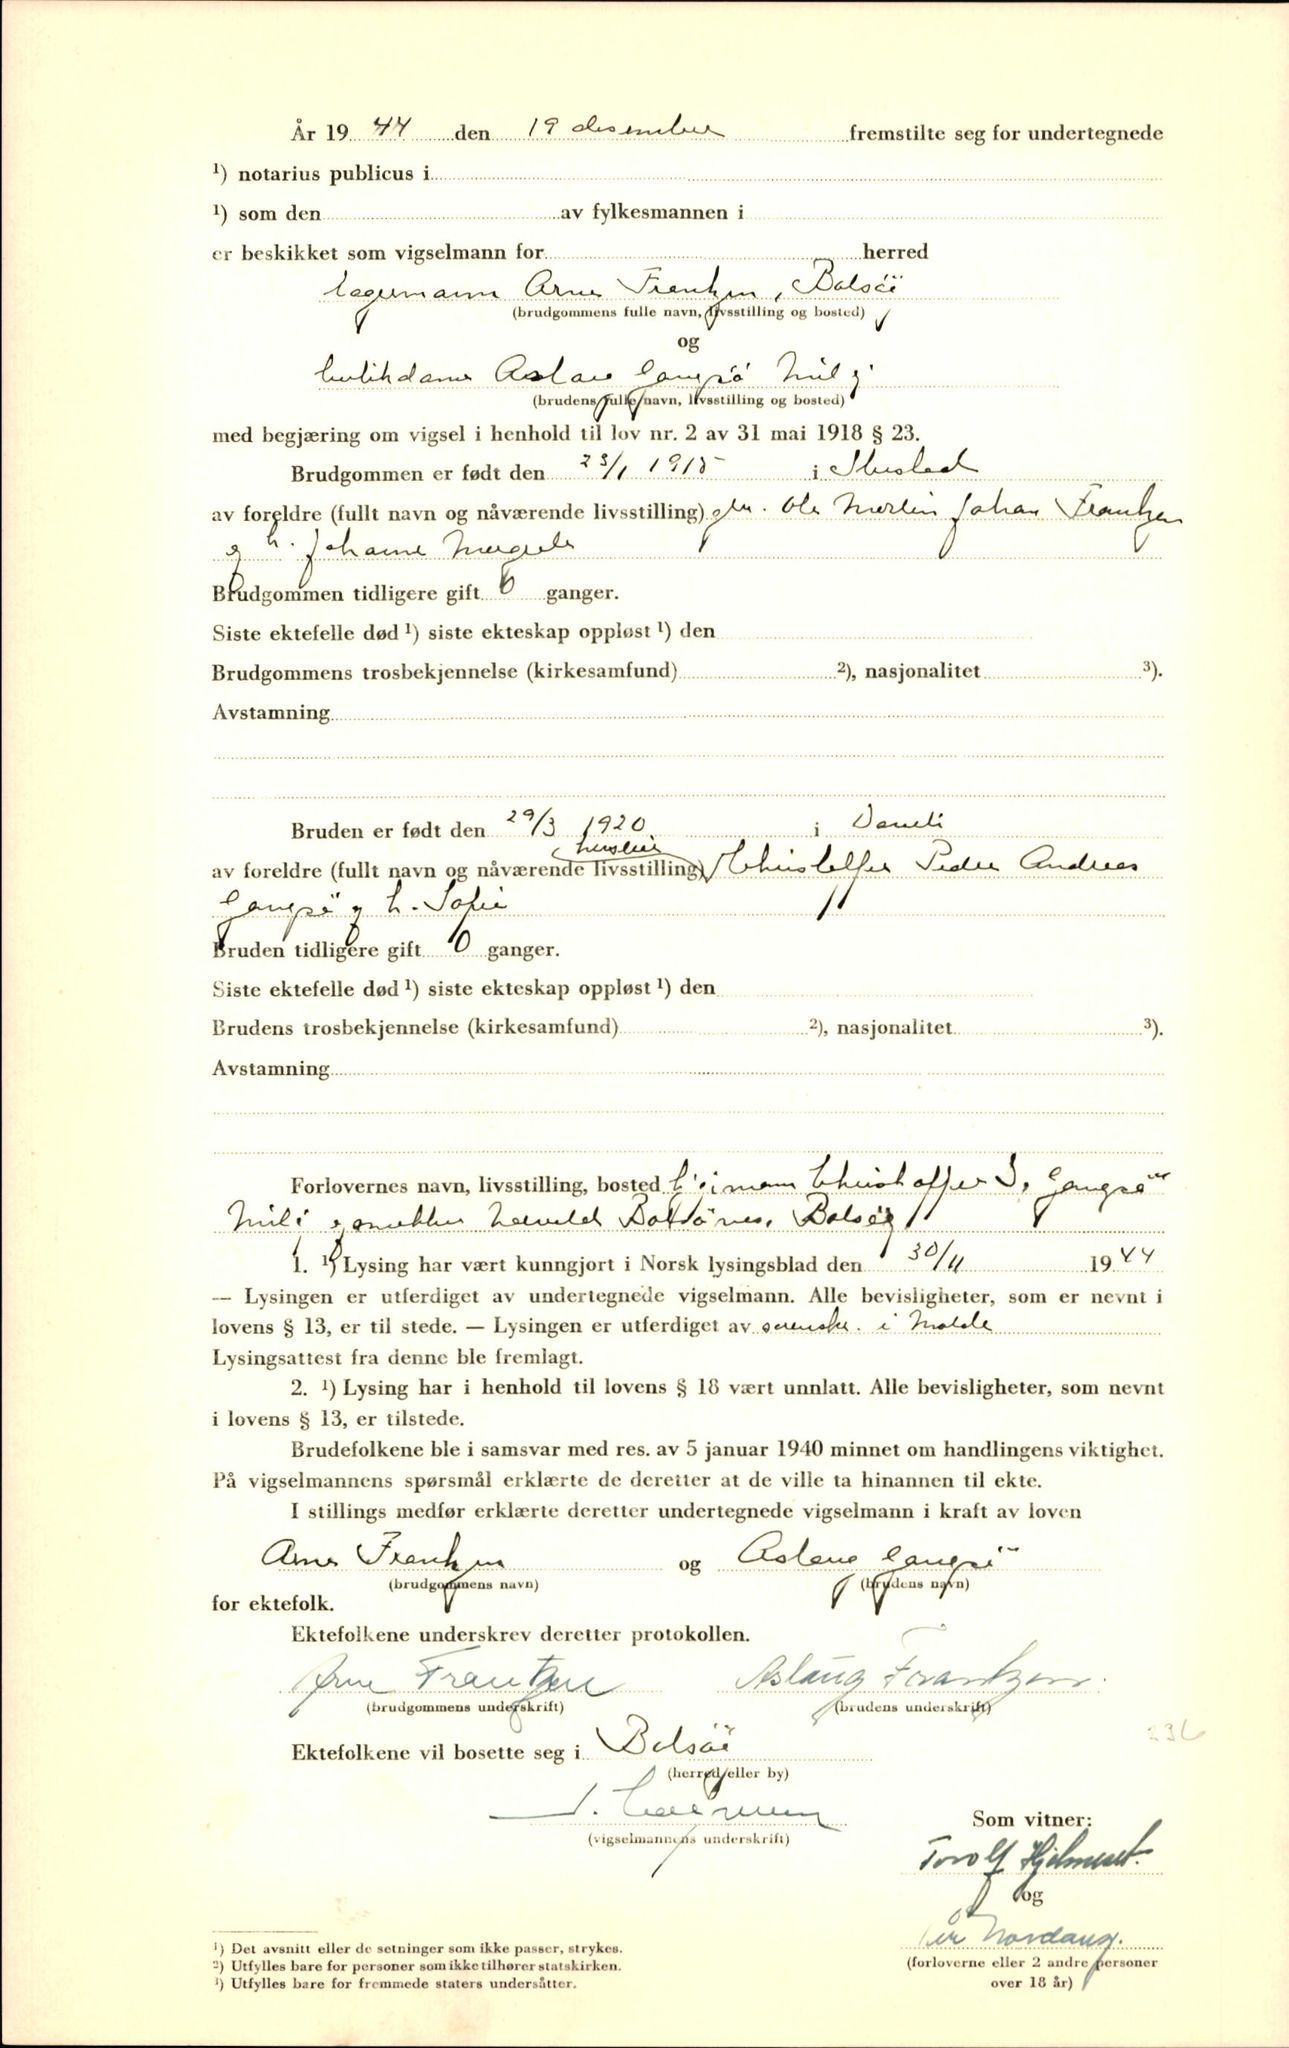 År 19 44 den 19 desember fremstilte seg for undertegnede
¹) notarius publicus i
¹) som den av fylkesmannen i
er beskikket som vigselmann for herred
lagermann Arne Frantzen, Bolsöi
(brudgommens fulle navn, livsstilling og bosted)
og
butikdame Aslaug Gangsö
(brudens fulle navn, livsstilling og bosted)
med begjæring om vigsel i henhold til lov nr. 2 av 31 mai 1918 § 23.
Brudgommen er født den 23/1 1915 i Hustad
av foreldre (fullt navn og nåværende livsstilling) Ole Martin Johan Frantzen
og h. Johanne Margrete
Brudgommen tidligere gift 0 ganger.
Siste ektefelle død ¹) siste ekteskap oppløst ¹) den
Brudgommens trosbekjennelse (kirkesamfund) ²), nasjonalitet ³).
Avstamning
Bruden er født den 29/3 1920 i
av foreldre (fullt navn og nåværende livsstilling) Christoffer Peder Andreas
Gangsö og h. Sofie
Bruden tidligere gift 0 ganger.
Siste ektefelle død ¹) siste ekteskap oppløst ¹) den
Brudens trosbekjennelse (kirkesamfund) ²), nasjonalitet ³).
Avstamning
Forlovernes navn, livsstilling, bosted Christoffer Gangsö
og snekker Bolsöi
1. ¹) Lysing har vært kunngjort i Norsk lysingsblad den 30/11 19 44
— Lysingen er utferdiget av undertegnede vigselmann. Alle bevisligheter, som er nevnt i
lovens § 13, er til stede. — Lysingen er utferdiget av sorenskr. i Molde
Lysingsattest fra denne ble fremlagt.
2. ¹) Lysing har i henhold til lovens § 18 vært unnlatt. Alle bevisligheter, som nevnt
i lovens § 13, er tilstede.
Brudefolkene ble i samsvar med res. av 5 januar 1940 minnet om handlingens viktighet.
På vigselmannens spørsmål erklærte de deretter at de ville ta hinannen til ekte.
I stillings medfør erklærte deretter undertegnede vigselmann i kraft av loven
Arne Frantzen og Aslaug Gangsö
(brudgommens navn) (brudens navn)
for ektefolk.
Ektefolkene underskrev deretter protokollen.
Arne Frantzen Aslaug Frantzen.
(brudgommens underskrift) (brudens underskrift)
236
Ektefolkene vil bosette seg i Bolsöi
(herred eller by)
(vigselmannens underskrift)
Som vitner:
Torolf Hjelmeset.
og
Per Nordang.
(forloverne eller 2 andre personer
over 18 år)
¹) Det avsnitt eller de setninger som ikke passer, strykes.
²) Utfylles bare for personer som ikke tilhører statskirken.
³) Utfylles bare for fremmede staters undersåtter.